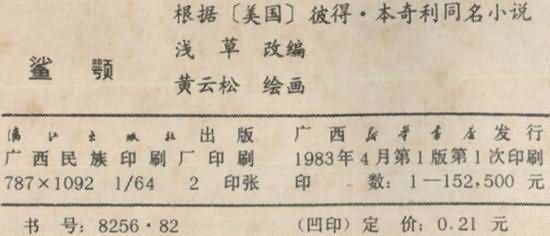 根据〔美国〕彼得·本奇利同名小说
鲨 颚
浅 草 改编
黄云松 绘画
漓江出版社 出版
广西新华书店发行
广西民族印刷厂印刷
1983年4月第1版第1次印刷
787×1092 1/64 2 印张
印 数：1—152,500元
书 号：8256·82
（凹印）定 价：0.21 元